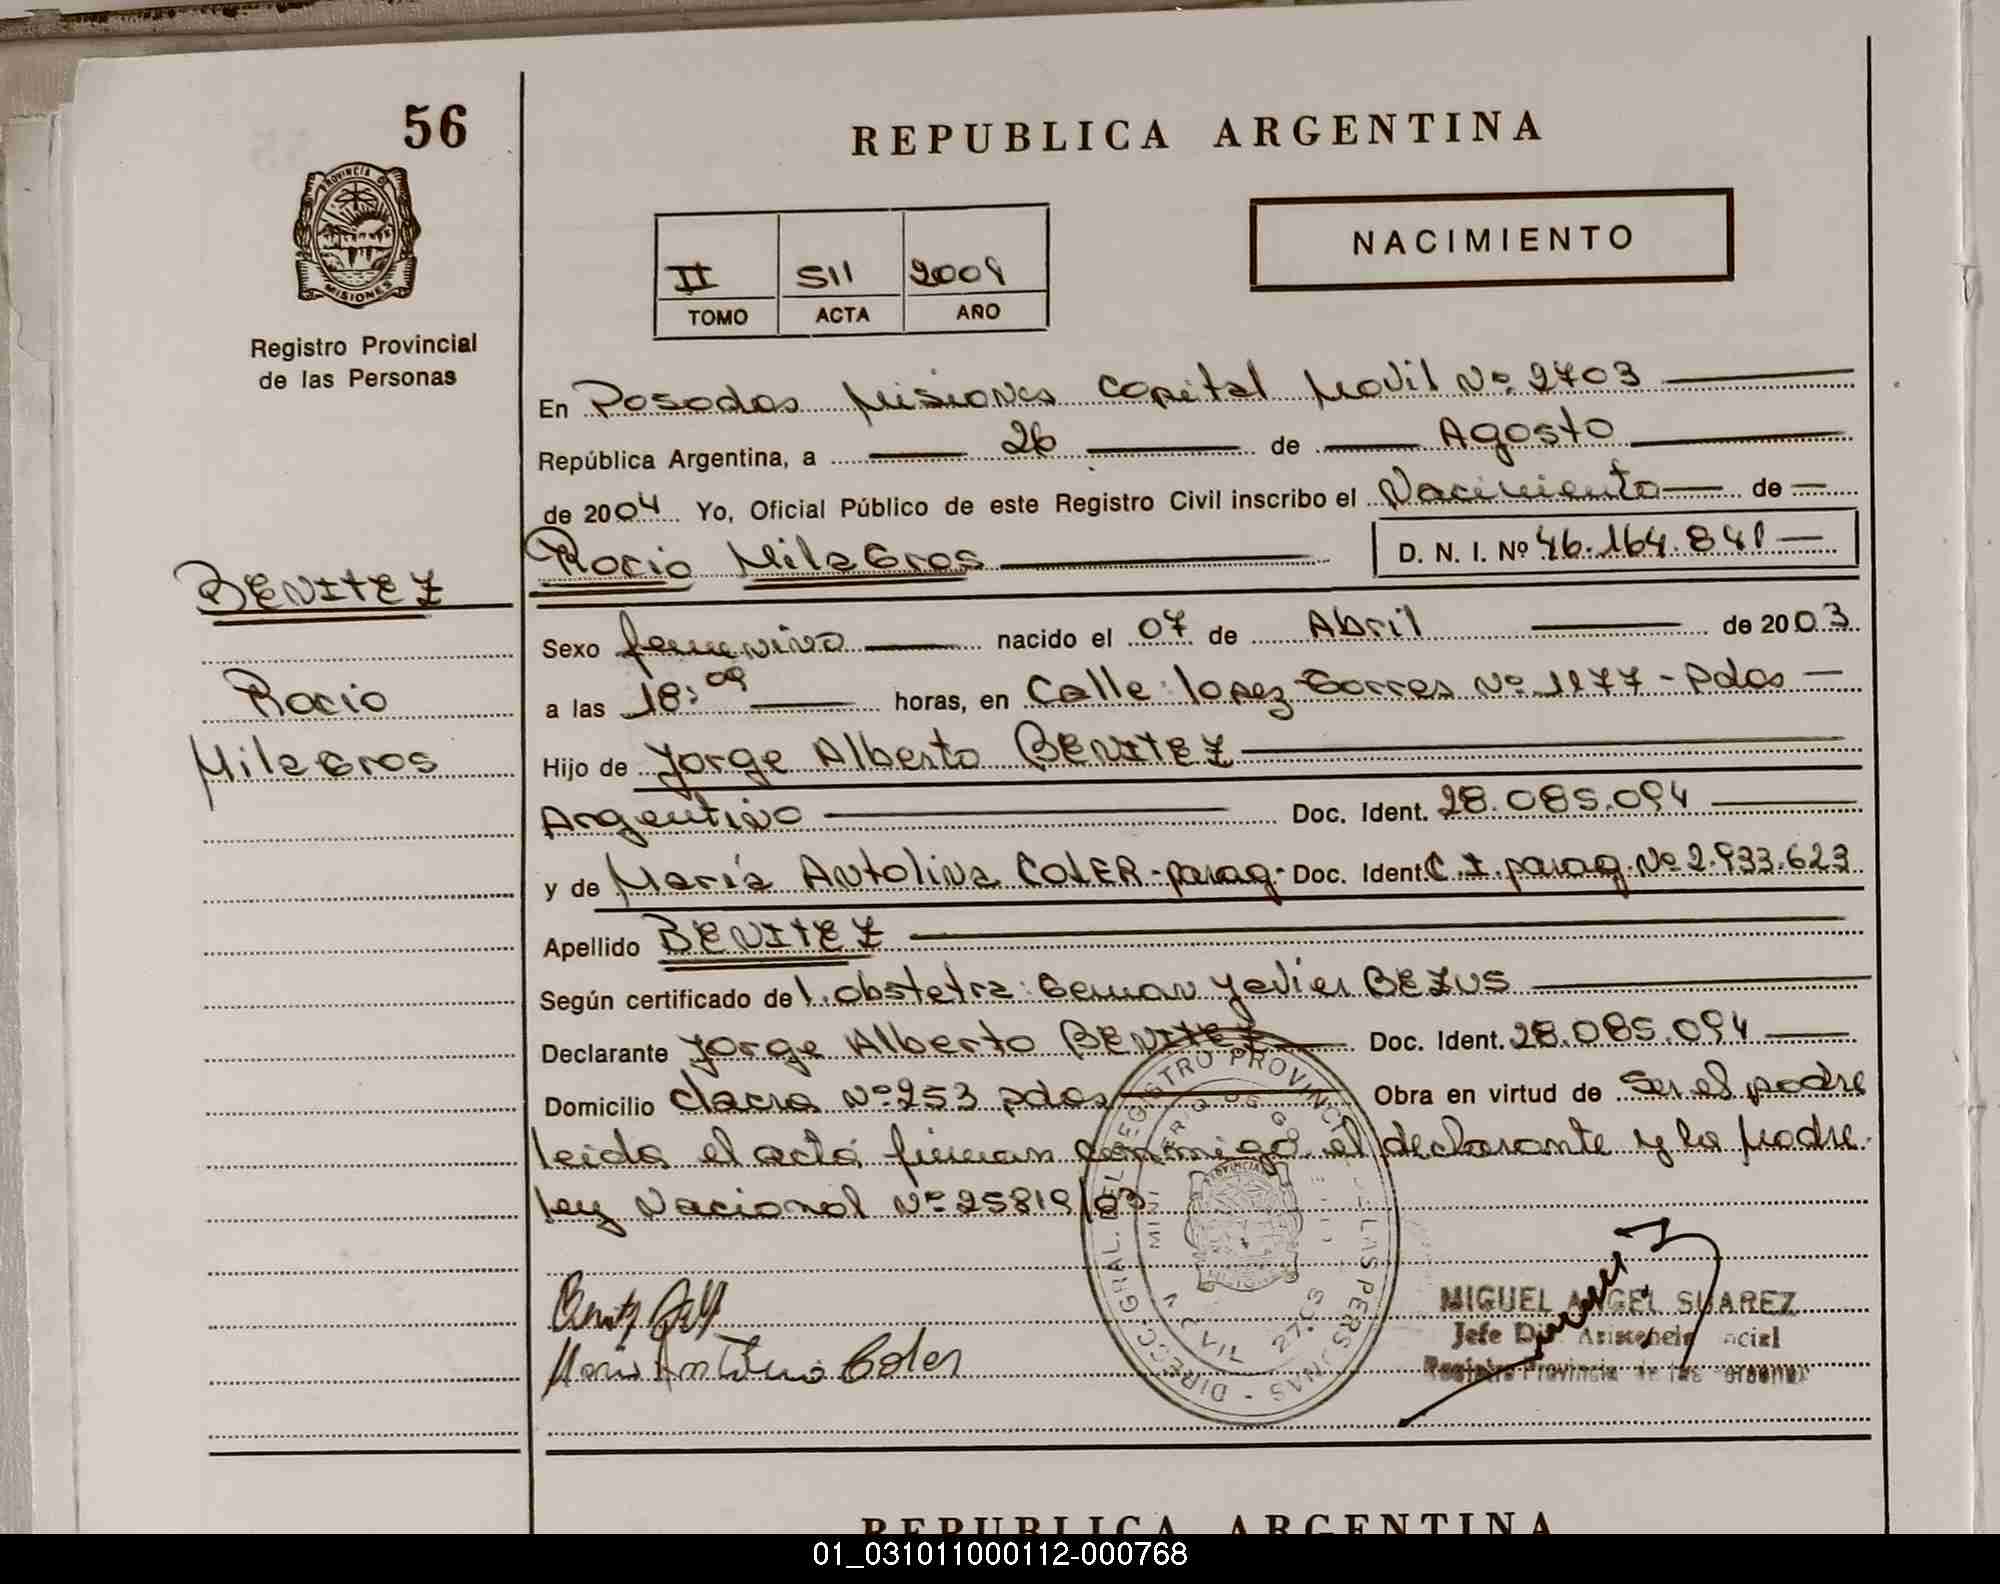 56
REPUBLICA ARGENTINA
PROVINCIA DE
MISIONES
NACIMIENTO
II 511 2004
TOMO ACTA AÑO
Registro Provincial
de las Personas
En Posadas Misiones Capital Movil Nº 2703
República Argentina, a 26 de Agosto
de 2004 Yo, Oficial Público de este Registro Civil inscribo el Nacimiento de
Rocio Milagros D. N. I. Nº 46.164.841
BENITEZ
Sexo femenino nacido el 07 de Abril de 2003
Rocio
a las 18:09 horas, en Calle: lopez torres Nº 1177 - Pdas
Milagros
Hijo de Jorge Alberto BENITEZ
Argentino Doc. Ident. 28.085.094
y de María Antolina COLER - parag - Doc. Ident. C.I. parag. Nº 2.933.623
Apellido BENITEZ
Según certificado de l. obstetra: German Javier BEZUS
Declarante Jorge Alberto BENITEZ Doc. Ident. 28.085.094
Domicilio chacra Nº 253 pdas Obra en virtud de Ser el padre
leida el acta firman conmigo el declarante y la madre.
ley Nacional Nº 25819/03
Benitez
Maria Antolina Coler
MIGUEL ANGEL SUAREZ
Jefe
Registro Provincial de las Personas
REPUBLICA ARGENTINA
01_031011000112-000768